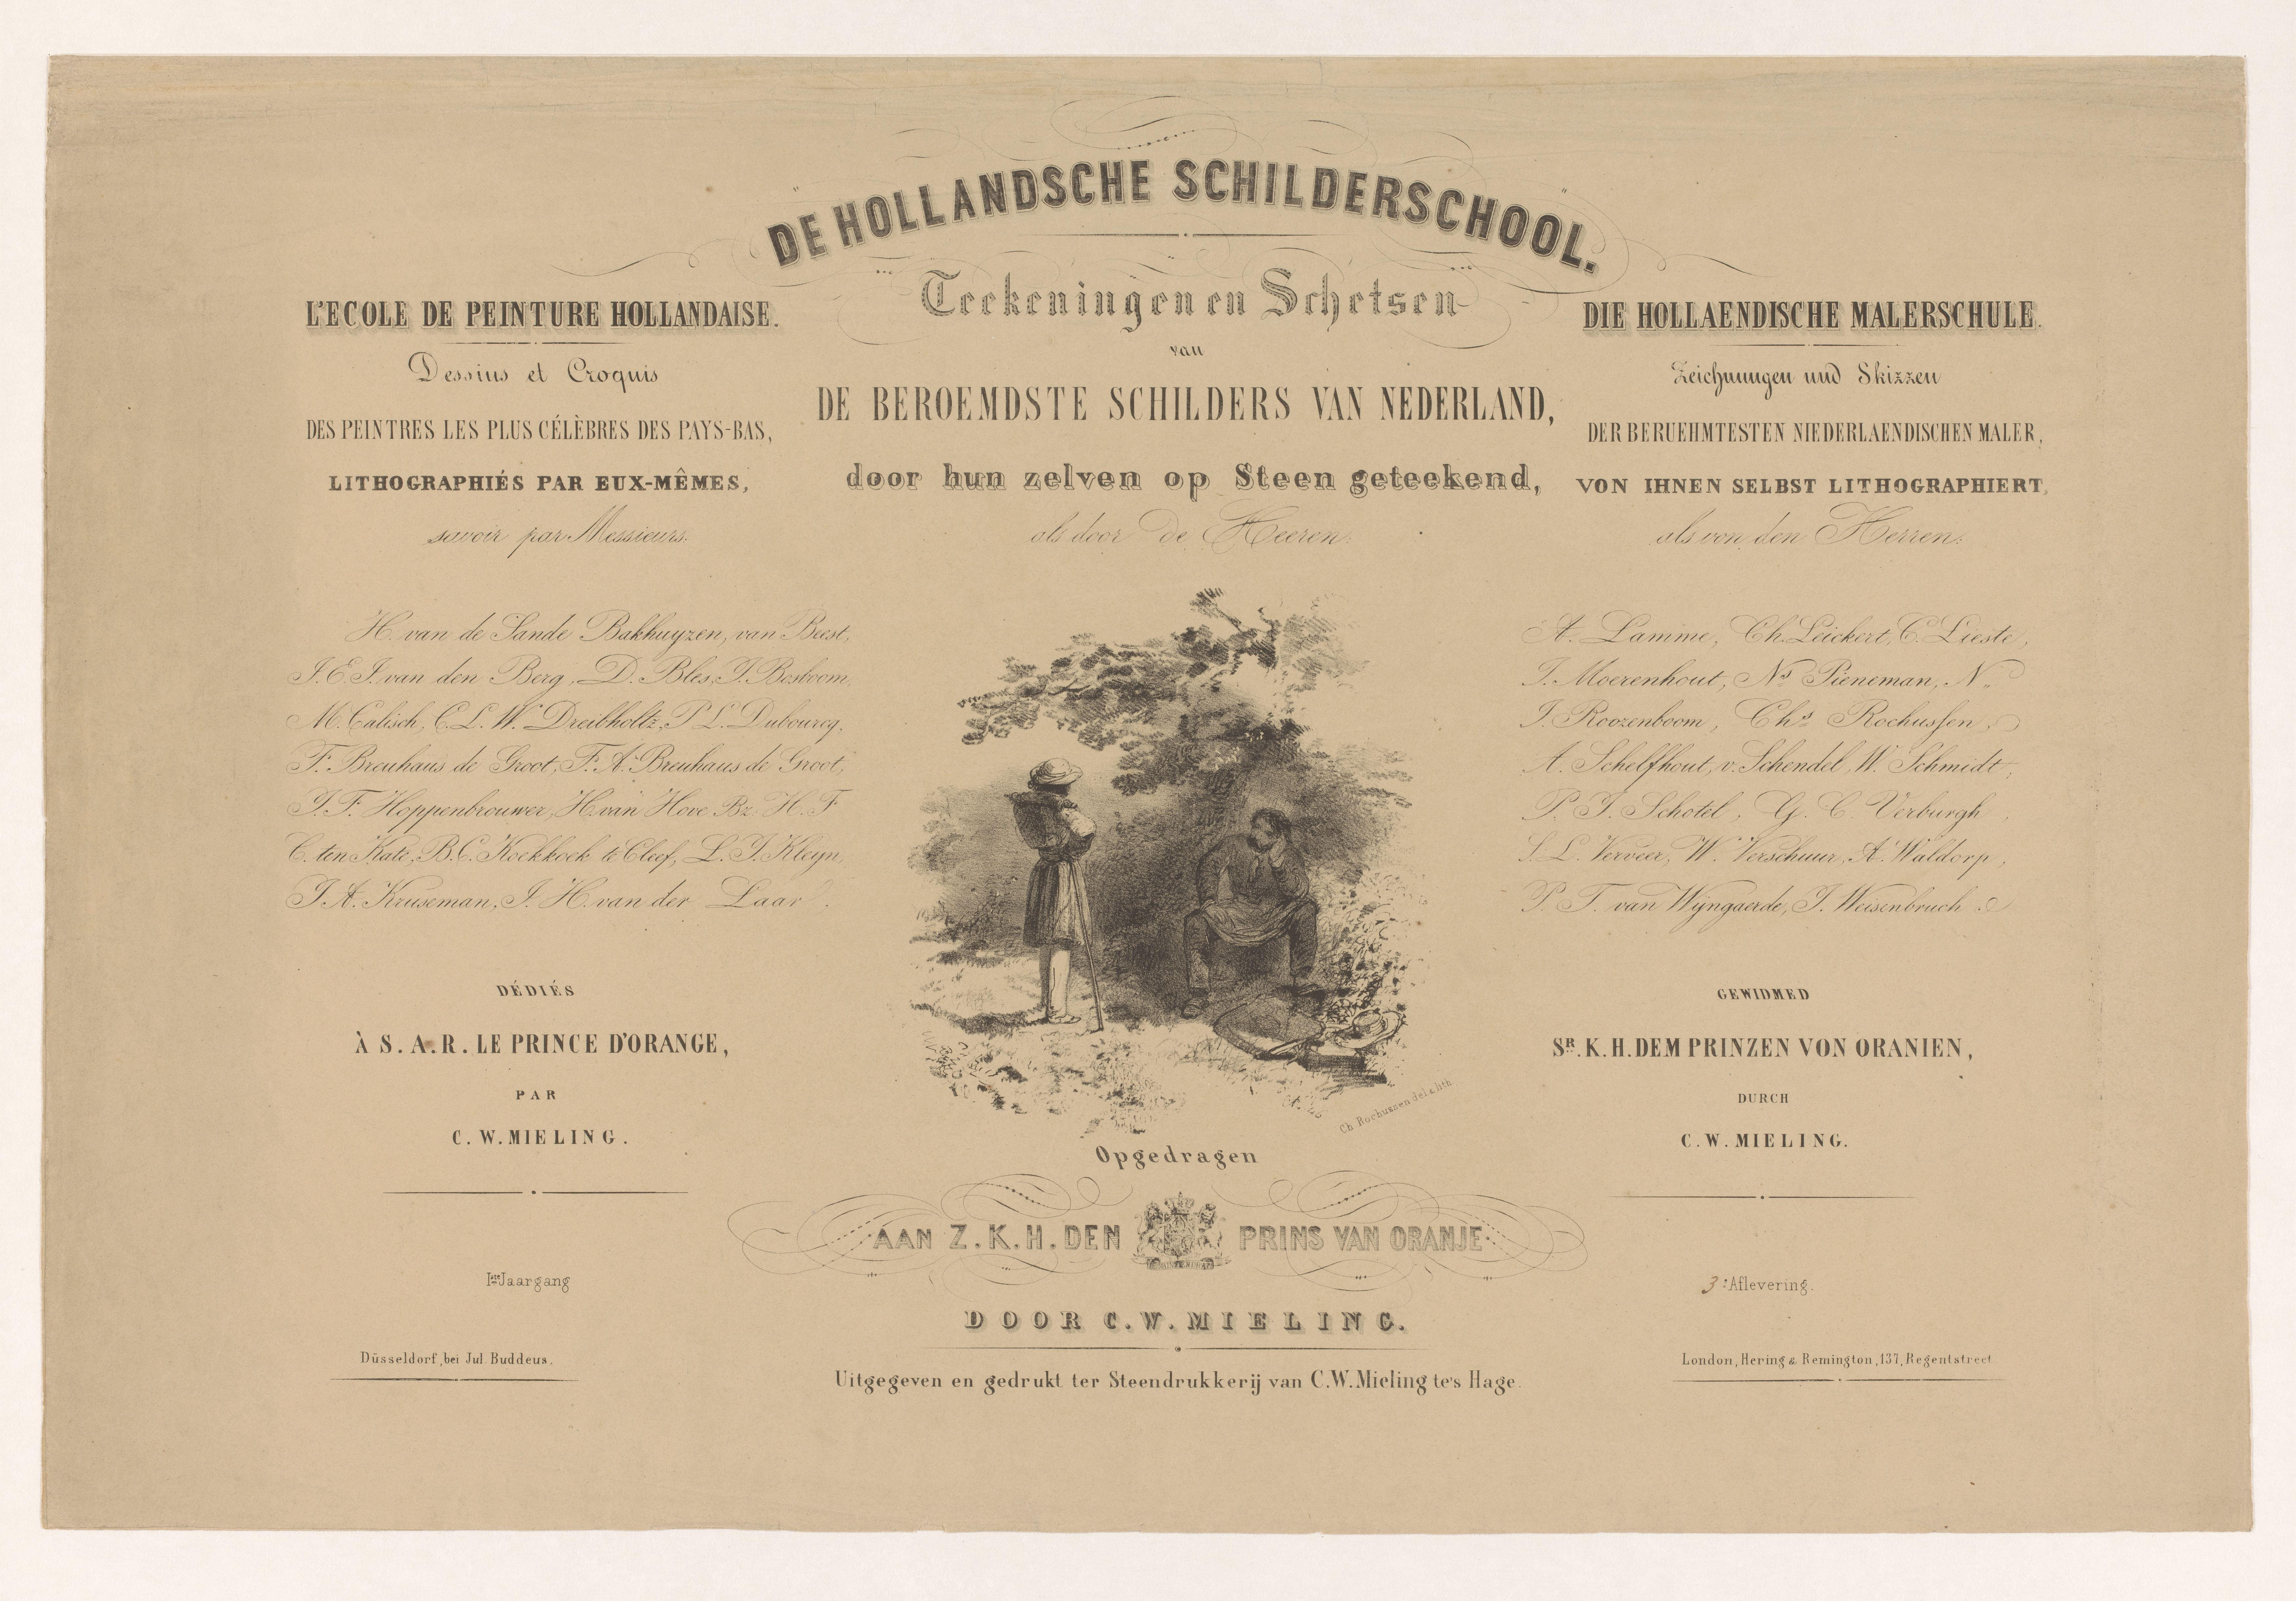 DE HOLLANDSCHE SCHILDERSCHOOL.
Teekeningen en Schetsen
van
DE BEROEMDSTE SCHILDERS VAN NEDERLAND,
door hun zelven op Steen geteekend,
als door de Heeren:
L'ECOLE DE PEINTURE HOLLANDAISE.
Dessins et Croquis
DES PEINTRES LES PLUS CÉLÈBRES DES PAYS-BAS,
LITHOGRAPHIÉS PAR EUX-MÊMES,
savoir par Messieurs.
H. van de Sande Bakhuyzen, van Beest,
J.E.J. van den Berg, D. Bles, J. Bosboom,
M. Calisch, C.L.W. Dreibholtz, P.L. Dubourcq,
F. Breuhaus de Groot, F.A. Breuhaus de Groot,
J.F. Hoppenbrouwer, H. van Hove Bz. H.F
C. ten Kate, B.C. Koekkoek te Cleef, L.J. Kleyn,
J.A. Kruseman, J.H. van der Laar.
DÉDIÉS
À S.A.R. LE PRINCE D'ORANGE,
PAR
C.W. MIELING.
Iste Jaargang
Düsseldorf, bei Jul. Buddeus.
DIE HOLLAENDISCHE MALERSCHULE.
Zeichnungen und Skizzen
DER BERUEHMTESTEN NIEDERLAENDISCHEN MALER,
VON IHNEN SELBST LITHOGRAPHIERT,
als von den Herren:
A. Lamme, Ch. Leickert, C. Lieste,
J. Moerenhout, Ns Pieneman, N.
J. Roozenboom, Chs Rochussen,
A. Schelfhout, v. Schendel, W. Schmidt,
P.J. Schotel, G.C. Verburgh,
S.L. Verveer, W. Verschuur, A. Waldorp,
P.T. van Wijngaerde, J. Weisenbruch.
GEWIDMED
SR. K.H. DEM PRINZEN VON ORANIEN,
DURCH
C.W. MIELING.
3e Aflevering.
London, Hering & Remington, 137, Regentstreet
Ch. Rochussen del & lith.
Opgedragen
AAN Z.K.H. DEN PRINS VAN ORANJE
DOOR C.W. MIELING.
Uitgegeven en gedrukt ter Steendrukkerij van C.W. Mieling te's Hage.